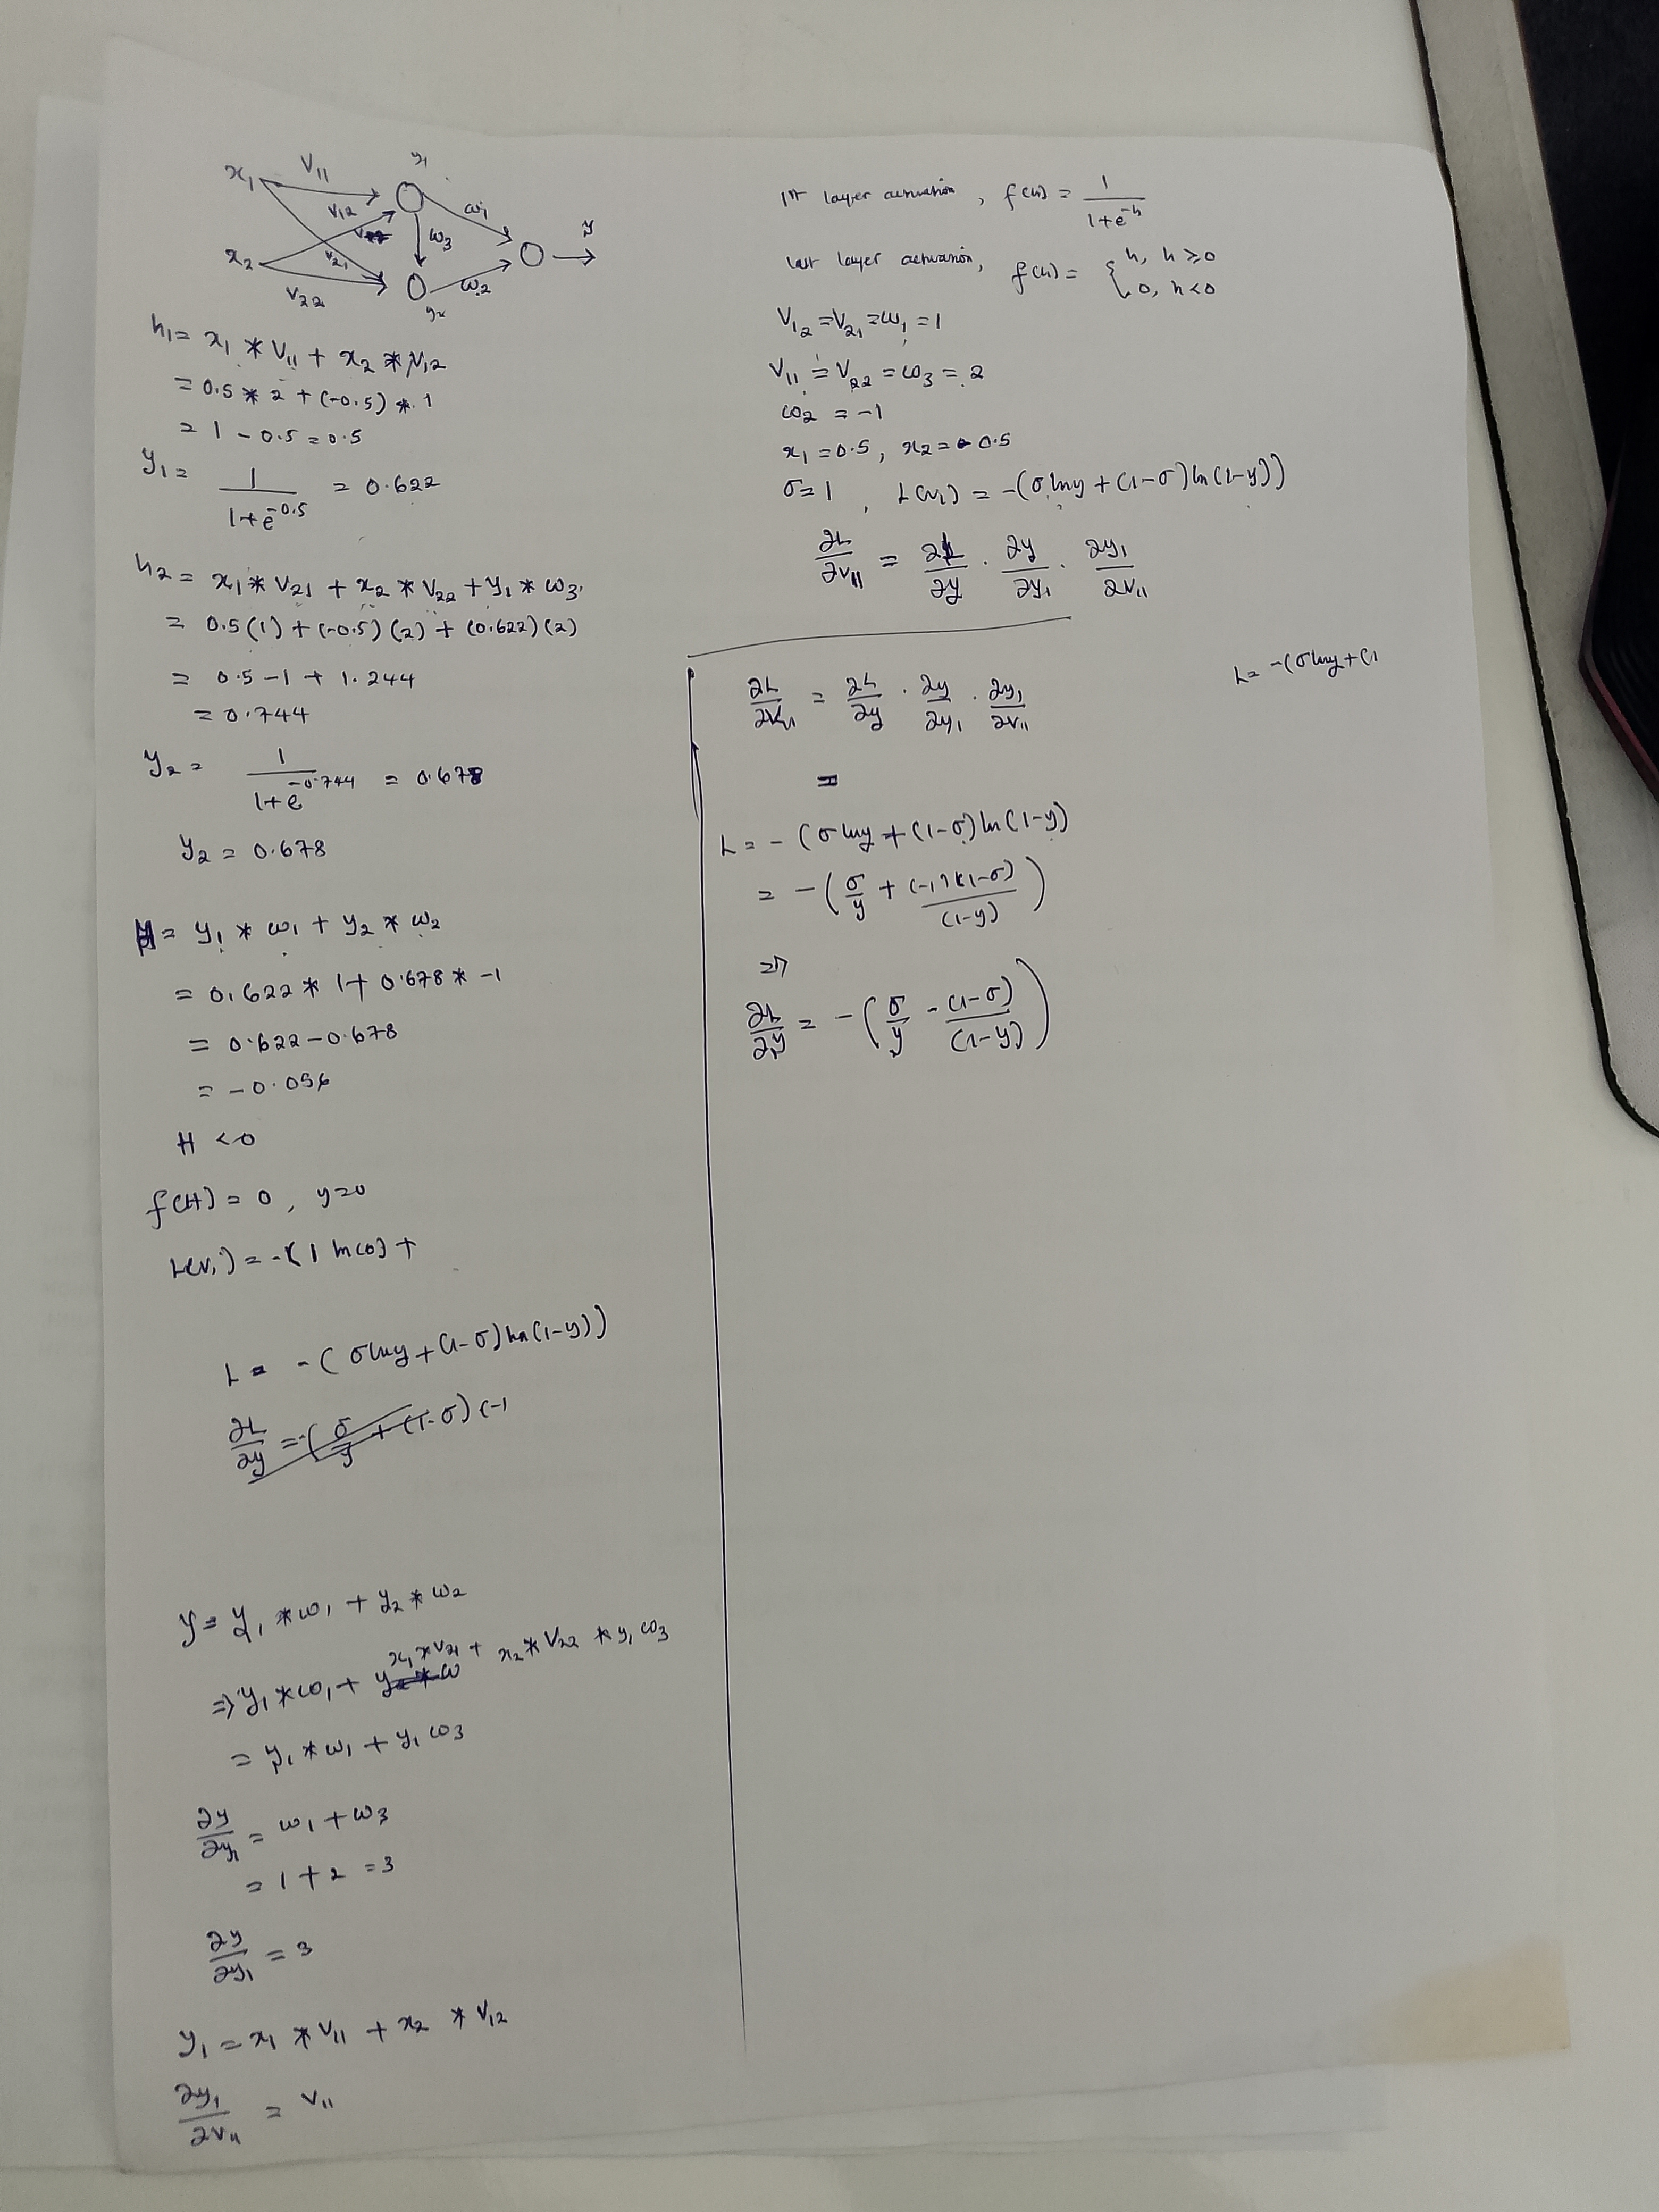 x₁ V₁₁ y₁
V₁₂ ω₁
ω₃ y
x₂ V₂₁
V₂₂ ω₂
y₂
h₁= x₁ * V₁₁ + x₂ * V₁₂
= 0.5 * 2 + (-0.5) * 1
= 1 - 0.5 = 0.5
y₁ = 1/(1+e^-0.5) = 0.622
h₂ = x₁ * V₂₁ + x₂ * V₂₂ + y₁ * ω₃
= 0.5(1) + (-0.5)(2) + (0.622)(2)
= 0.5 - 1 + 1.244
= 0.744
y₂ = 1/(1+e^-0.744) = 0.678
y₂ = 0.678
H = y₁ * ω₁ + y₂ * ω₂
= 0.622 * 1 + 0.678 * -1
= 0.622 - 0.678
= -0.056
H < 0
f(H) = 0, y=0
L(v₁) = -(1 ln(0) +
L = -(σ lny + (1-σ) ln(1-y))
∂L/∂y = -(σ/y + (1-σ)(-1
y = y₁ * ω₁ + y₂ * ω₂
x₁ * V₂₁ + x₂ * V₂₂ * y₁ ω₃
⇒ y₁ * ω₁ + y₂ * ω
= y₁ * ω₁ + y₁ ω₃
∂y/∂y₁ = ω₁ + ω₃
= 1 + 2 = 3
∂y/∂y₁ = 3
y₁ = x₁ * V₁₁ + x₂ * V₁₂
∂y₁/∂v₁₁ = V₁₁
1st layer activation, f(h) = 1/(1+e^-h)
last layer activation, f(h) = { h, h ≥ 0
0, h < 0
V₁₂ = V₂₁ = ω₁ = 1
V₁₁ = V₂₂ = ω₃ = 2
ω₂ = -1
x₁ = 0.5, x₂ = -0.5
σ = 1, L(v₁) = -(σ lny + (1-σ) ln(1-y))
∂L/∂v₁₁ = ∂L/∂y . ∂y/∂y₁ . ∂y₁/∂v₁₁
∂L/∂v₁₁ = ∂L/∂y . ∂y/∂y₁ . ∂y₁/∂v₁₁
=
L = -(σ lny + (1-σ) ln(1-y)
= -(σ/y + (-1)(1-σ)/(1-y))
⇒
∂L/∂y = -(σ/y - (1-σ)/(1-y))
L = -(σ lny + (1